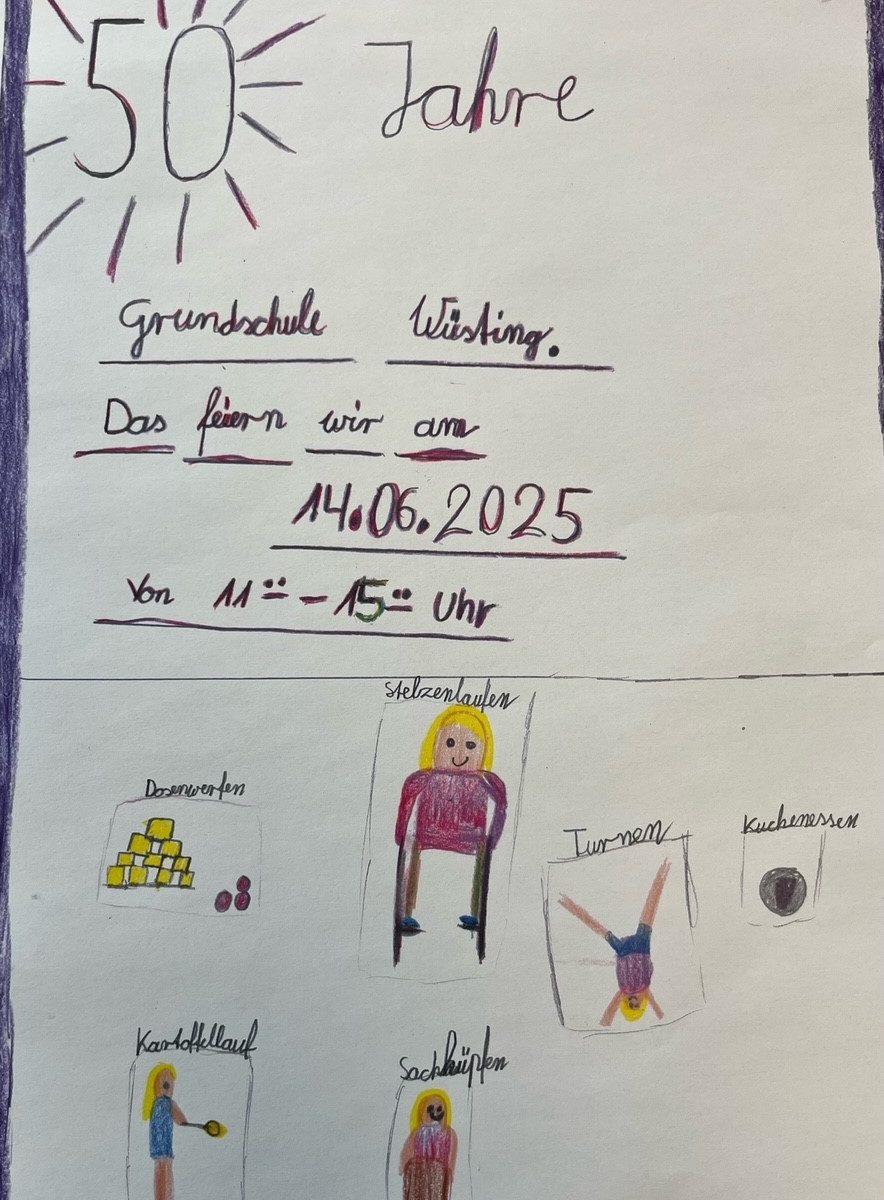 50 Jahre
Grundschule Wüsting.
Das feiern wir am
14.06.2025
Von 11:00 - 15:00 Uhr
Stelzenlaufen
Dosenwerfen
Turnen
Kuchenessen
Kartoffellauf
Sackhüpfen